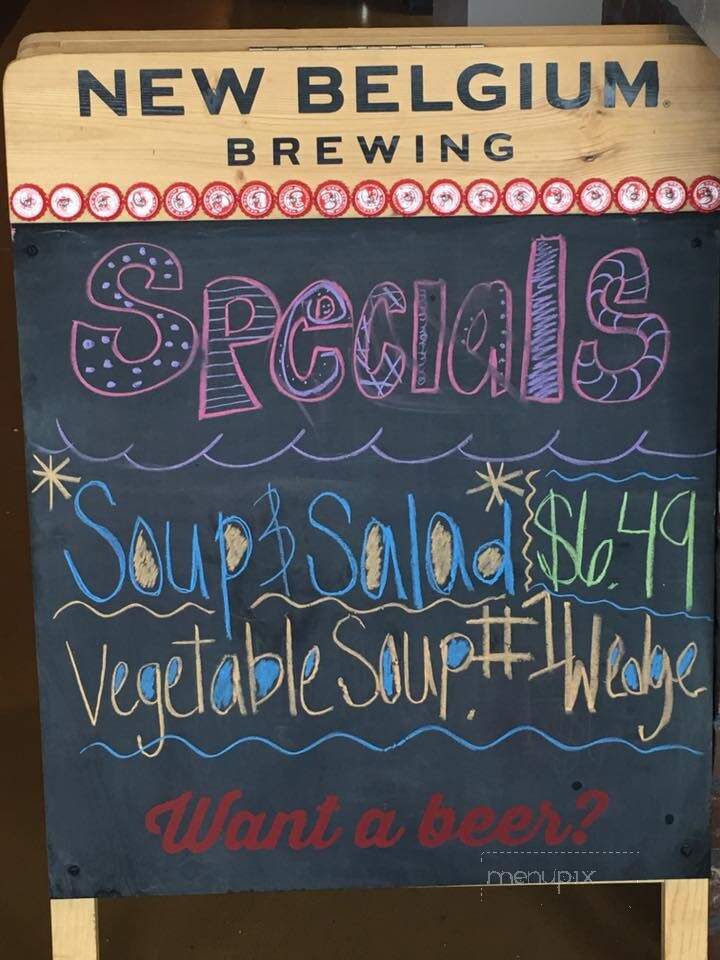 NEW BELGIUM
BREWING
Specials
*Soup & Salad* $6.49
Vegetable Soup #1 Wedge
Want a beer?
menupix